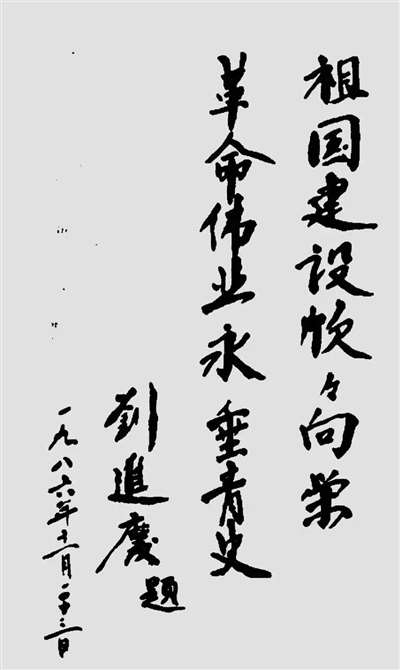 祖国建设欣々向荣
革命伟业永垂青史
劉進慶題
一九八六年十一月二十三日